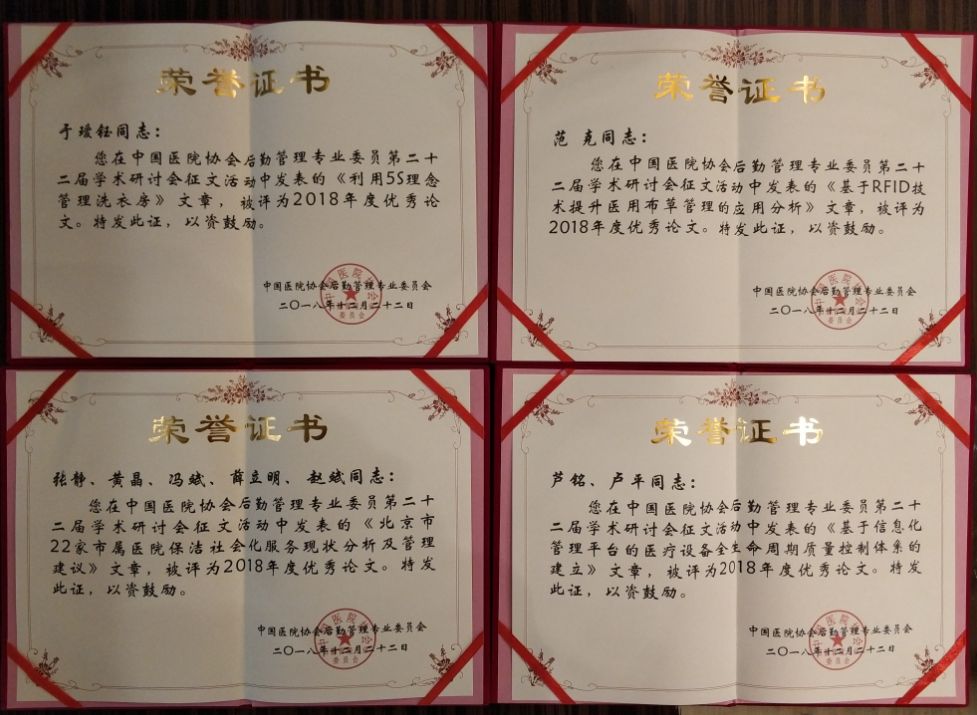 荣誉证书
于瑷钰同志：
您在中国医院协会后勤管理专业委员第二十
二届学术研讨会征文活动中发表的《利用5S理念
管理洗衣房》文章，被评为2018年度优秀论
文。特发此证，以资鼓励。
中国医院协会后勤管理专业委员会
二〇一八年十二月二十二日
荣誉证书
范 克同志：
您在中国医院协会后勤管理专业委员第二十
二届学术研讨会征文活动中发表的《基于RFID技
术提升医用布草管理的应用分析》文章，被评为
2018年度优秀论文。特发此证，以资鼓励。
中国医院协会后勤管理专业委员会
二〇一八年十二月二十二日
荣誉证书
张静、黄晶、冯斌、薛立明、赵斌同志：
您在中国医院协会后勤管理专业委员第二十
二届学术研讨会征文活动中发表的《北京市
22家市属医院保洁社会化服务现状分析及管理
建议》文章，被评为2018年度优秀论文。特发
此证，以资鼓励。
中国医院协会后勤管理专业委员会
二〇一八年十二月二十二日
荣誉证书
芦铭、卢平同志：
您在中国医院协会后勤管理专业委员第二十
二届学术研讨会征文活动中发表的《基于信息化
管理平台的医疗设备全生命周期质量控制体系的
建立》文章，被评为2018年度优秀论文。特发
此证，以资鼓励。
中国医院协会后勤管理专业委员会
二〇一八年十二月二十二日